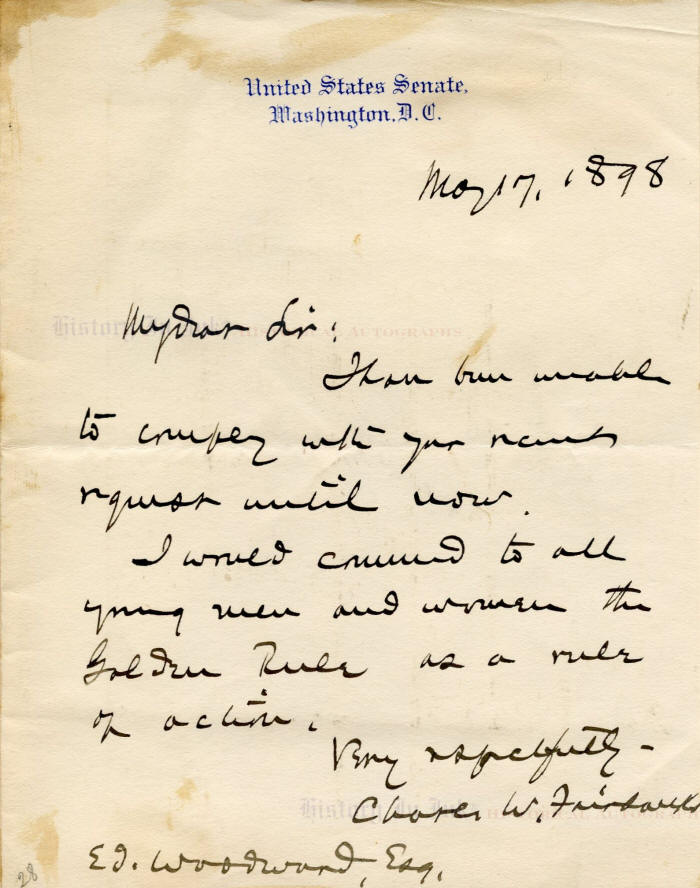 United States Senate,
Washington, D.C.
May 17, 1898
My dear Sir:
History In Ink HISTORICAL AUTOGRAPHS
I have been unable
to comply with your recent
request until now.
I would commend to all
young men and women the
Golden Rule as a rule
of action.
Very respectfully -
Charles W. Fairbanks
History In Ink HISTORICAL AUTOGRAPHS
Ed. Woodward, Esq.
28